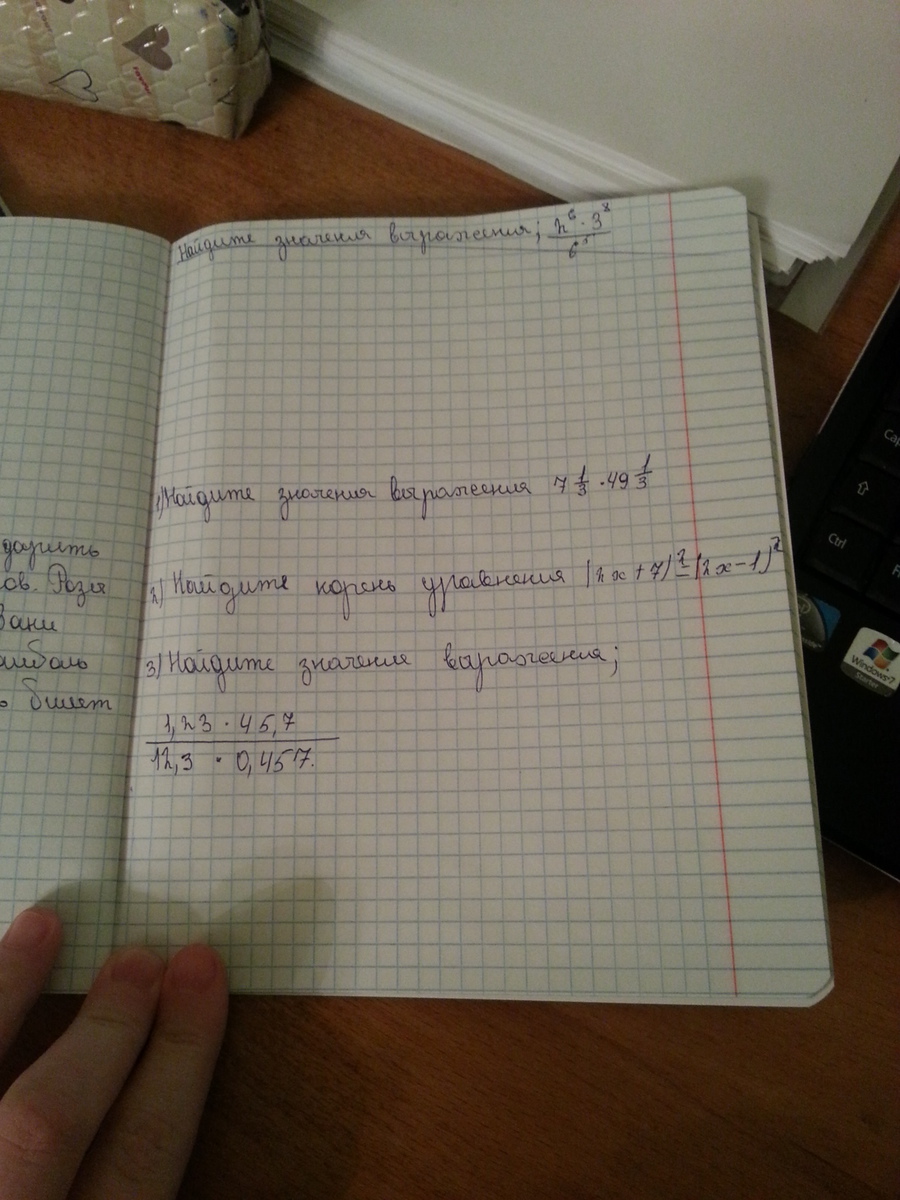 Найдите значения выражения; 2⁶ · 3⁸ / 6⁵
1) Найдите значения выражения 7 1/3 · 49 1/3
2) Найдите корень уравнения (2x + 7)² = (2x - 1)²
3) Найдите значения выражения;
1,23 · 45,7
12,3 · 0,457.
дарить
ов. Розы
Вани
билет
Cap
Ctrl
Windows 7